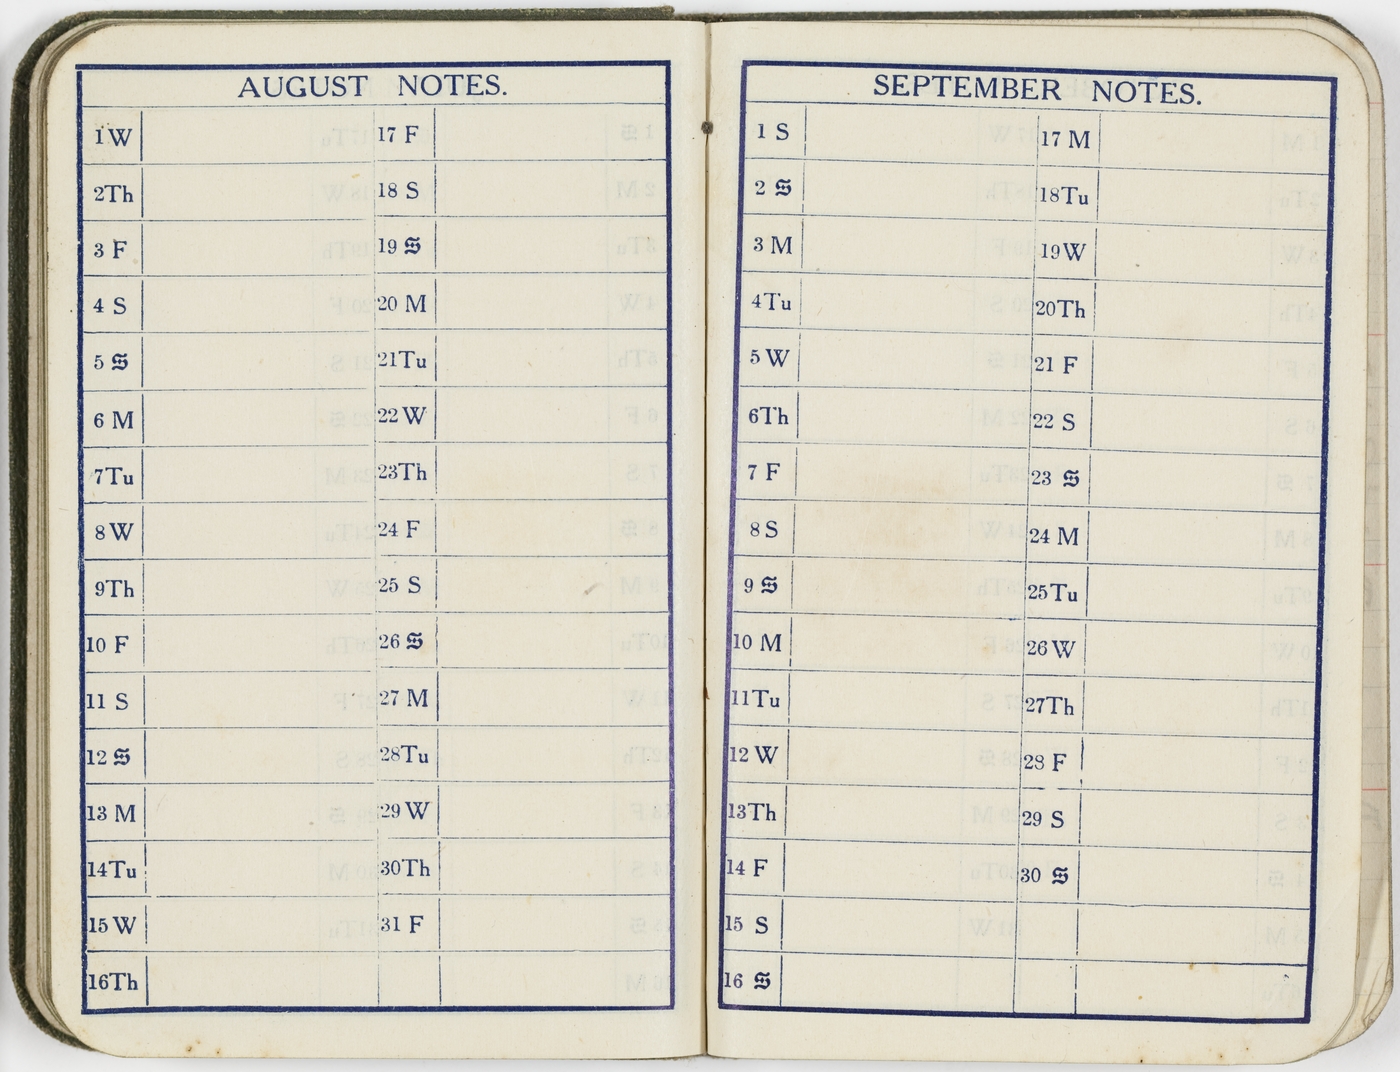 AUGUST NOTES.
1 W
2 Th
3 F
4 S
5 S
6 M
7 Tu
8 W
9 Th
10 F
11 S
12 S
13 M
14 Tu
15 W
16 Th
17 F
18 S
19 S
20 M
21 Tu
22 W
23 Th
24 F
25 S
26 S
27 M
28 Tu
29 W
30 Th
31 F
SEPTEMBER NOTES.
1 S
2 S
3 M
4 Tu
5 W
6 Th
7 F
8 S
9 S
10 M
11 Tu
12 W
13 Th
14 F
15 S
16 S
17 M
18 Tu
19 W
20 Th
21 F
22 S
23 S
24 M
25 Tu
26 W
27 Th
28 F
29 S
30 S